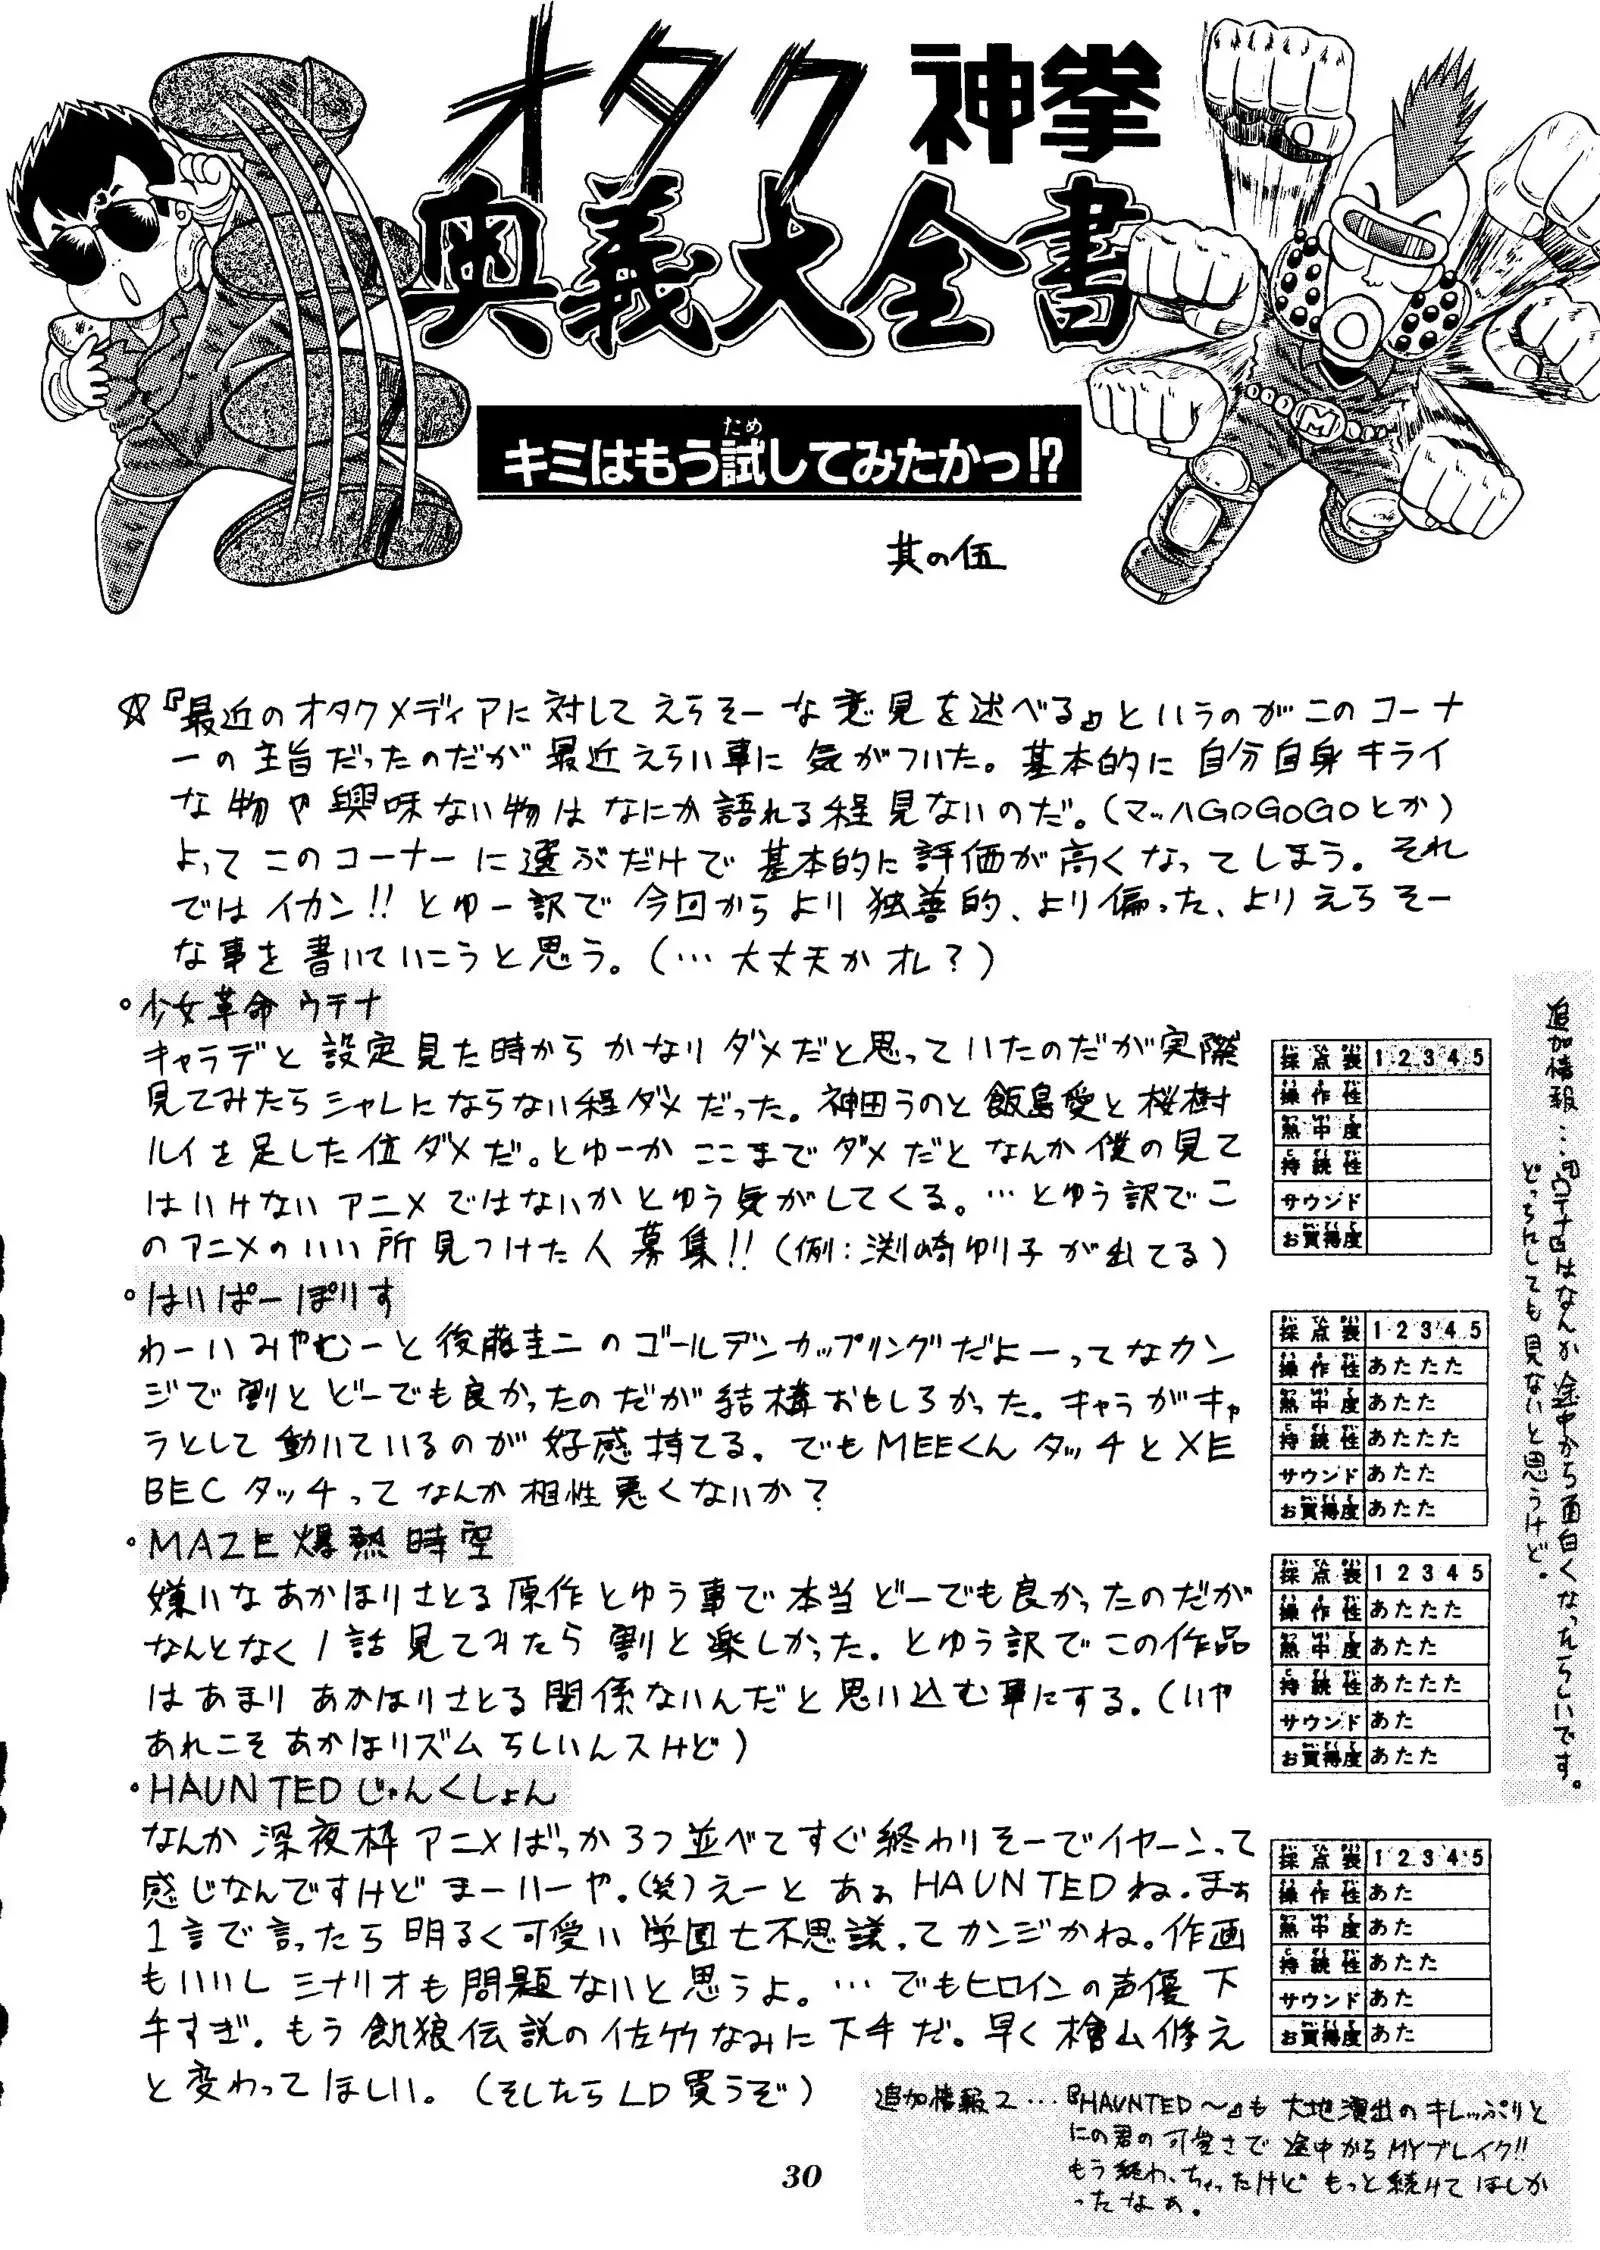 オタク神拳
奥義大全書
キミはもう試してみたかっ!?
ため
其の伍
☆『最近のオタクメディアに対してえらそーな意見を述べる』というのがこのコーナ
ーの主旨だったのだが最近えらい事に気がついた。基本的に自分自身キライ
な物や興味ない物はなにか語れる程見ないのだ。(マッハGOGOGOとか)
よってこのコーナーに選ぶだけで基本的に評価が高くなってしまう。それ
ではイカン!!とゆー訳で今回からより独善的、より偏った、よりえらそー
な事を書いていこうと思う。(…大丈夫かオレ?)
・少女革命ウテナ
キャラデと設定見た時からかなりダメだと思っていたのだが実際
見てみたらシャレにならない程ダメだった。神田うのと飯島愛と桜樹
ルイを足した位ダメだ。とゆーかここまでダメだとなんか僕の見て
はいけないアニメではないかとゆう気がしてくる。…とゆう訳でこ
のアニメのいい所見つけた人募集!!(例:渕崎ゆり子が出てる)
採点表 1 2 3 4 5
操作性
熱中度
持続性
サウンド
お買得度
・はいぱーぽりす
わーいみやむーと後藤圭二のゴールデンカップリングだよーってなカン
ジで割とどーでも良かったのだが結構おもしろかった。キャラがキャ
ラとして動いているのが好感持てる。でもMEEくんタッチとXE
BECタッチってなんか相性悪くないか?
採点表 1 2 3 4 5
操作性 あたたた
熱中度 あたた
持続性 あたたた
サウンド あたた
お買得度 あたた
・MAZE爆熱時空
嫌いなあかほりさとる原作とゆう事で本当どーでも良かったのだが
なんとなく1話見てみたら割と楽しかった。とゆう訳でこの作品
はあまりあかほりさとる関係ないんだと思い込む事にする。(いや
あれこそあかほりズムらしいんスけど)
採点表 1 2 3 4 5
操作性 あたたた
熱中度 あたた
持続性 あたたた
サウンド あた
お買得度 あたた
・HAUNTEDじゃんくしょん
なんか深夜枠アニメばっか3つ並べてすぐ終わりそーでイヤーンって
感じなんですけどまーいーや。(笑)えーとあぁHAUNTEDね。まぁ
1言で言ったら明るく可愛い学園七不思議ってカンジかね。作画
もいいしシナリオも問題ないと思うよ。…でもヒロインの声優下
手すぎ。もう飢狼伝説の佐竹なみに下手だ。早く檜山修え
と変わってほしい。(そしたらLD買うぞ)
採点表 1 2 3 4 5
操作性 あた
熱中度 あた
持続性 あたた
サウンド あた
お買得度 あた
追加情報…『ウテナ』はなんか途中から面白くなったらしいです。
どっちにしても見ないと思うけど。
追加情報2…『HAUNTED〜』も大地演出のキレっぷりと
にの君の可愛さで途中からMYブレイク!!
もう終わっちゃったけどもっと続けてほしか
ったなぁ。
30
M